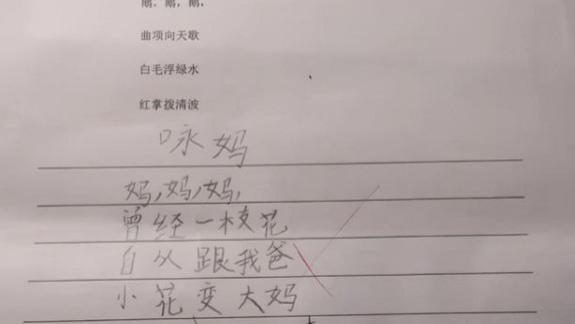 鹅，鹅，鹅，
曲项向天歌
白毛浮绿水
红掌拨清波
咏妈
妈,妈,妈,
曾经一枝花
自从跟我爸
小花变大妈